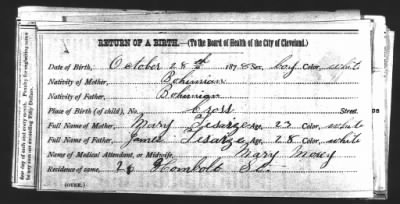 RETURN OF A BIRTH.—(To the Board of Health of the City of Cleveland.)
Date of Birth, October 28th 1878 Sex, boy Color, white
Nativity of Mother, Bohemian
Nativity of Father, Bohemian
Place of Birth (of child), No. Cross Street.
Full Name of Mother, Mary Age, 23 Color, white
Full Name of Father, James Age, 28 Color, white
Name of Medical Attendant, or Midwife, Mary
Residence of same, St.
(OVER.)